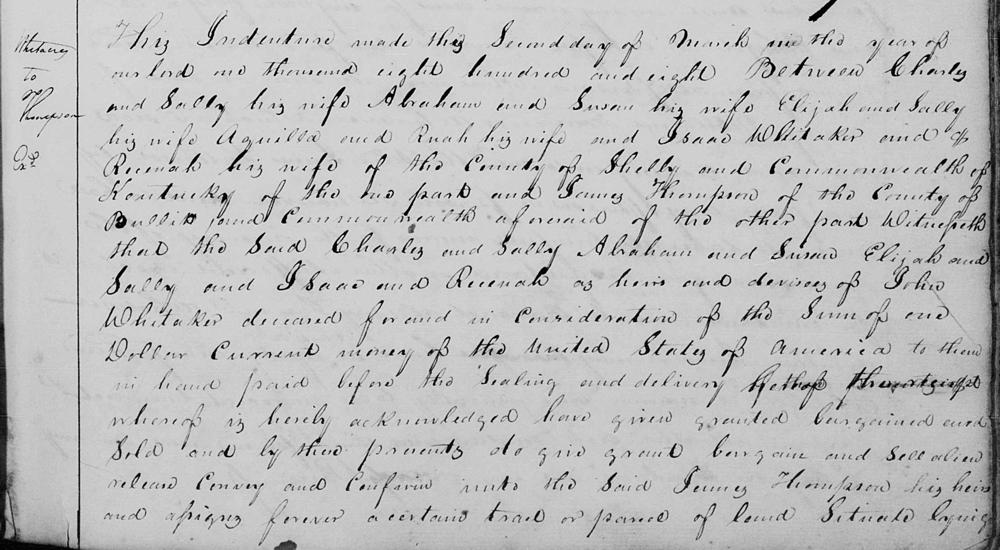 Whitacres
to
Thompson
Exd
This Indenture made this Second day of March in the year of
our lord one thousand eight hundred and eight Between Charles
and Sally his wife Abraham and Susan his wife Elijah and Sally
his wife Aquilla and Ruah his wife and Isaac Whitaker and
Recenah his wife of the County of Shelly and Commonwealth of
Kentucky of the one part and James Thompson of the County of
Bullit and Commonwealth aforesaid of the other part Witnesseth
that the Said Charles and Sally Abraham and Susan Elijah and
Sally and Isaac and Recenah as heirs and devisees of John
Whitaker deceased for and in consideration of the Sum of one
Dollar Current money of the United States of America to them
in hand paid before the Sealing and delivery
whereof is hereby acknowledged have given granted bargained and
Sold and by these presents do give grant bargain and Sell alien
release Convey and Confirm unto the Said James Thompson his heirs
and assigns forever a certain tract or parcel of land Situate lying